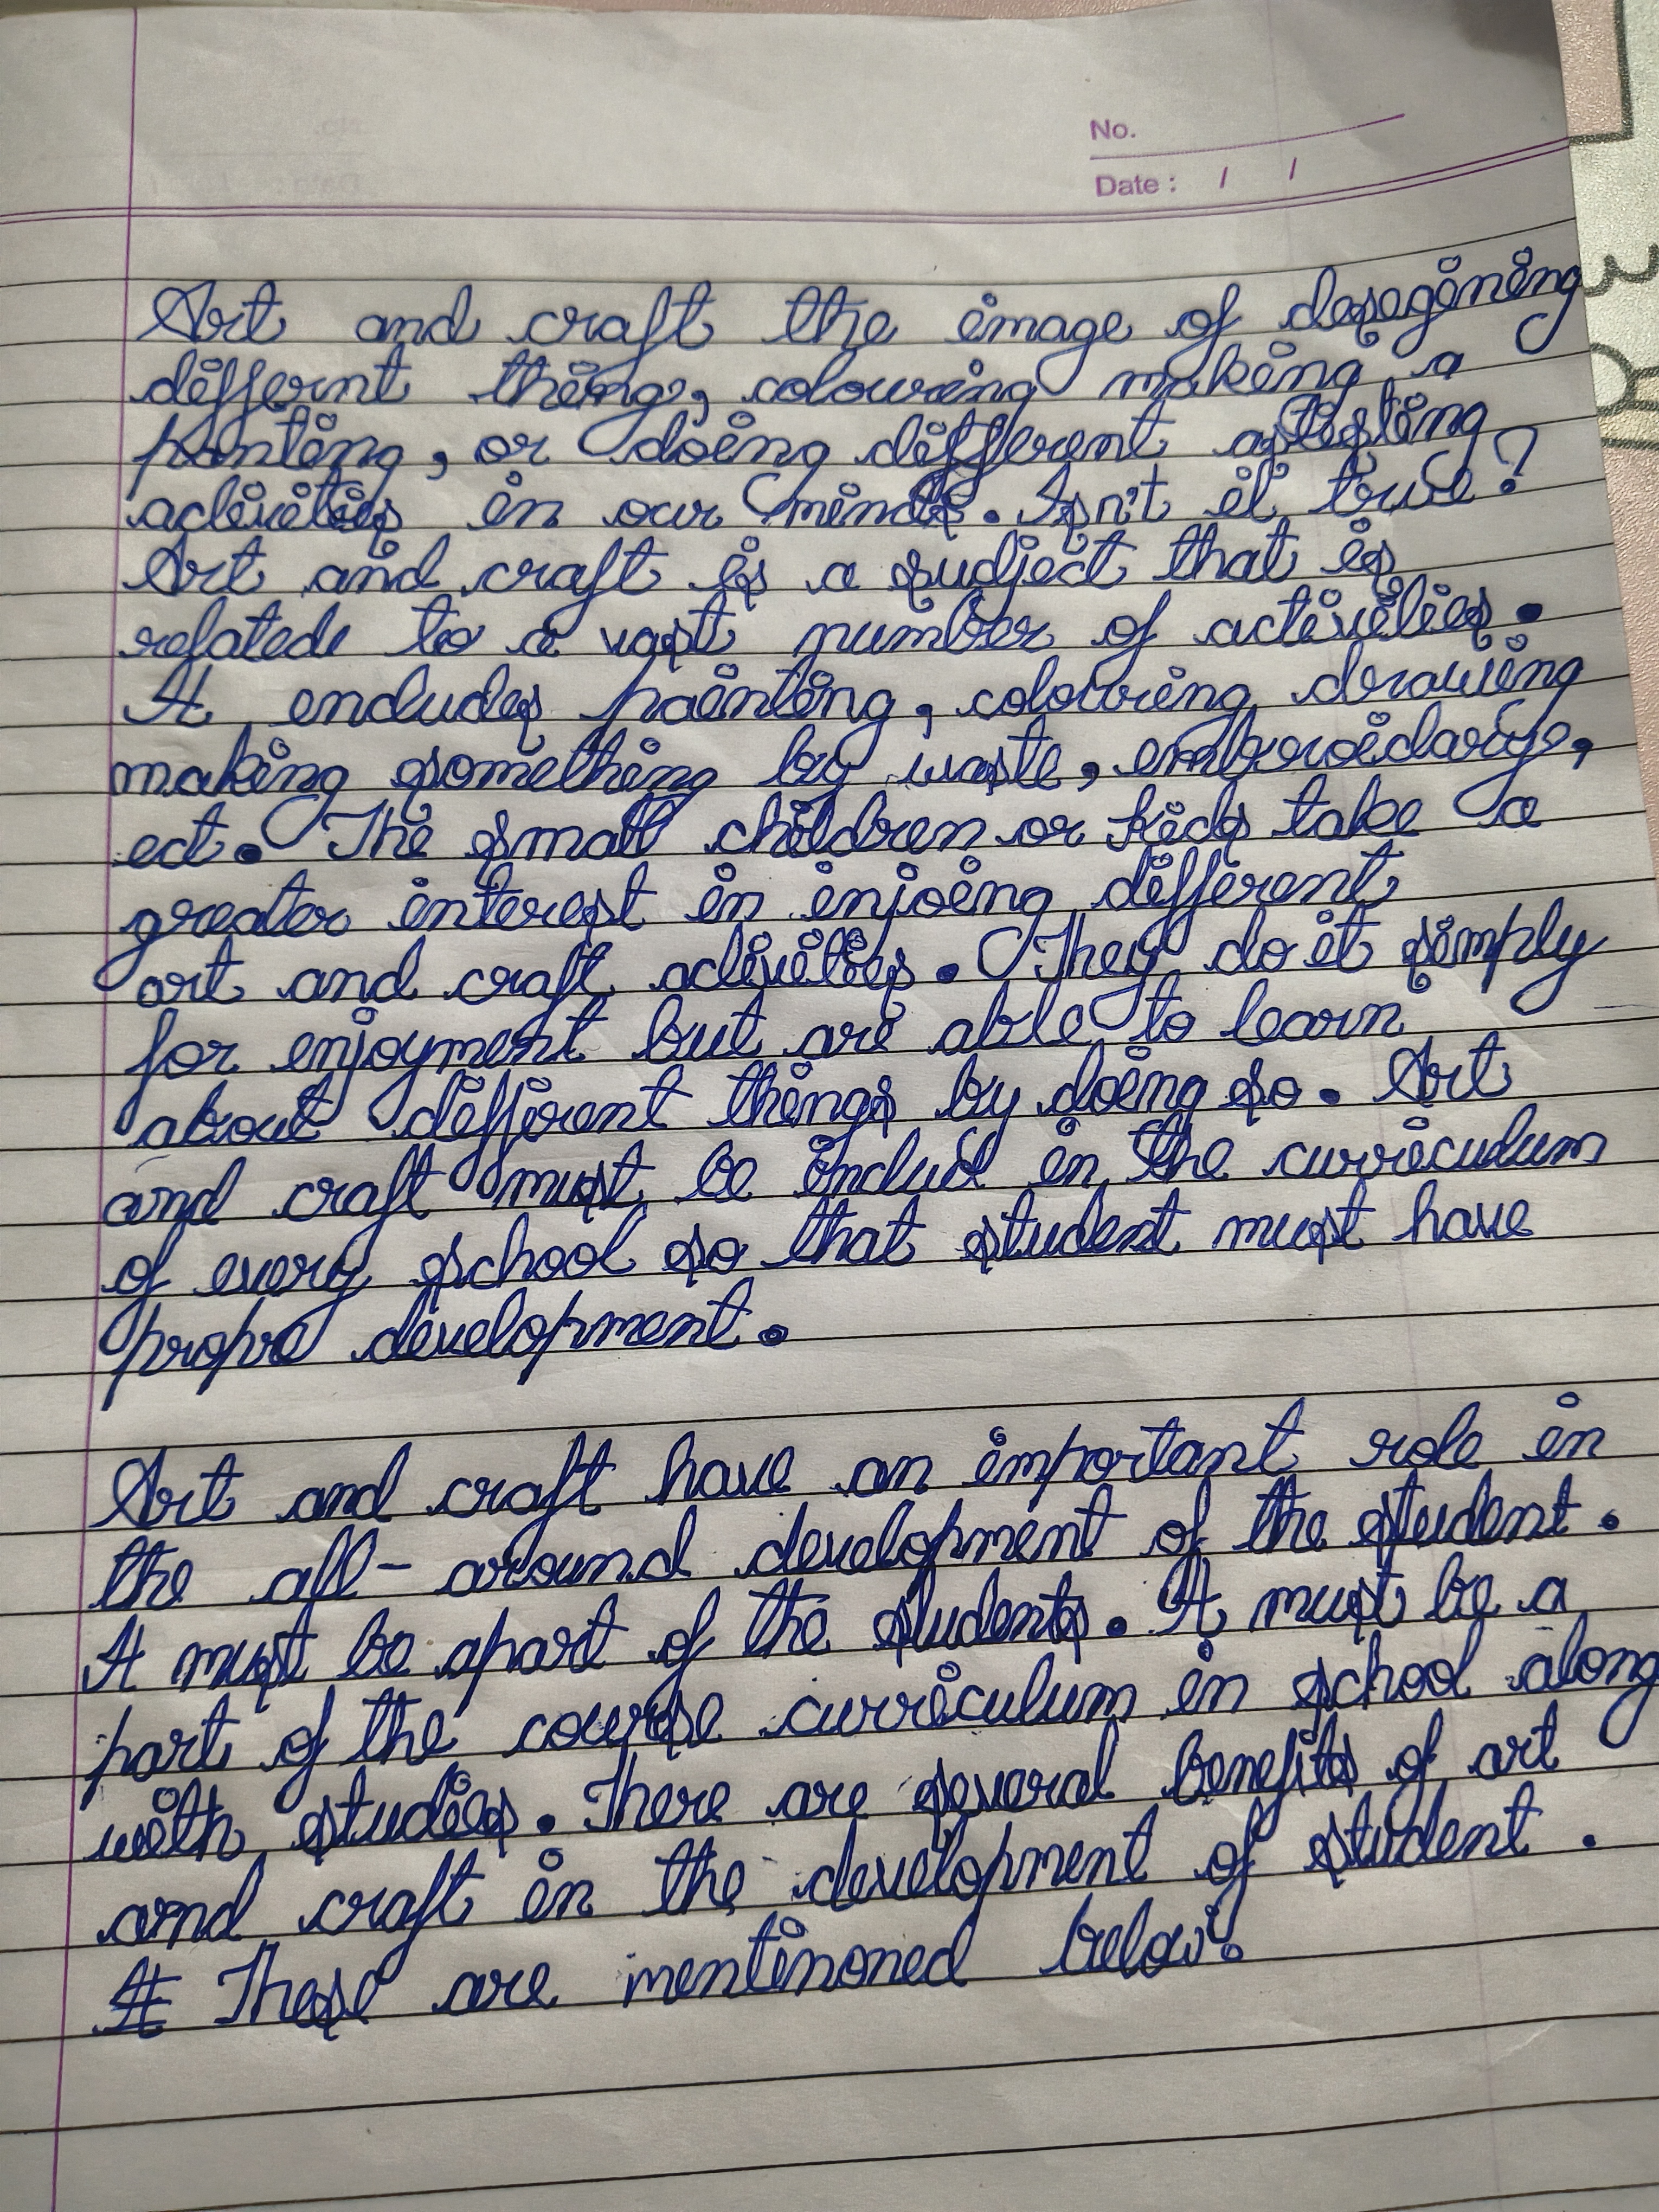 No.
Date : / /
Art and craft the image of desegining
differnt things, colouring making a
panting, or doing different
activities in our minds. Isn't it true?
Art and craft is a sudject that is
related to a vast number of activities.
It encludes painting, colouring, drawing
making something by waste, embroidarye,
ect. The small children or kids take a
greater interest in injoing different
art and craft activities. They do it simply
for enjoyment but are able to learn
about different things by doing so. Art
and craft must be includ in the curriculum
of every school so that student must have
propre development.
Art and craft have an important role in
the all-around development of the student.
It must be apart of the students. It must be a
part of the course curriculum in school along
with studies. There are several benefits of art
and craft in the development of student.
It These are mentinoned below: